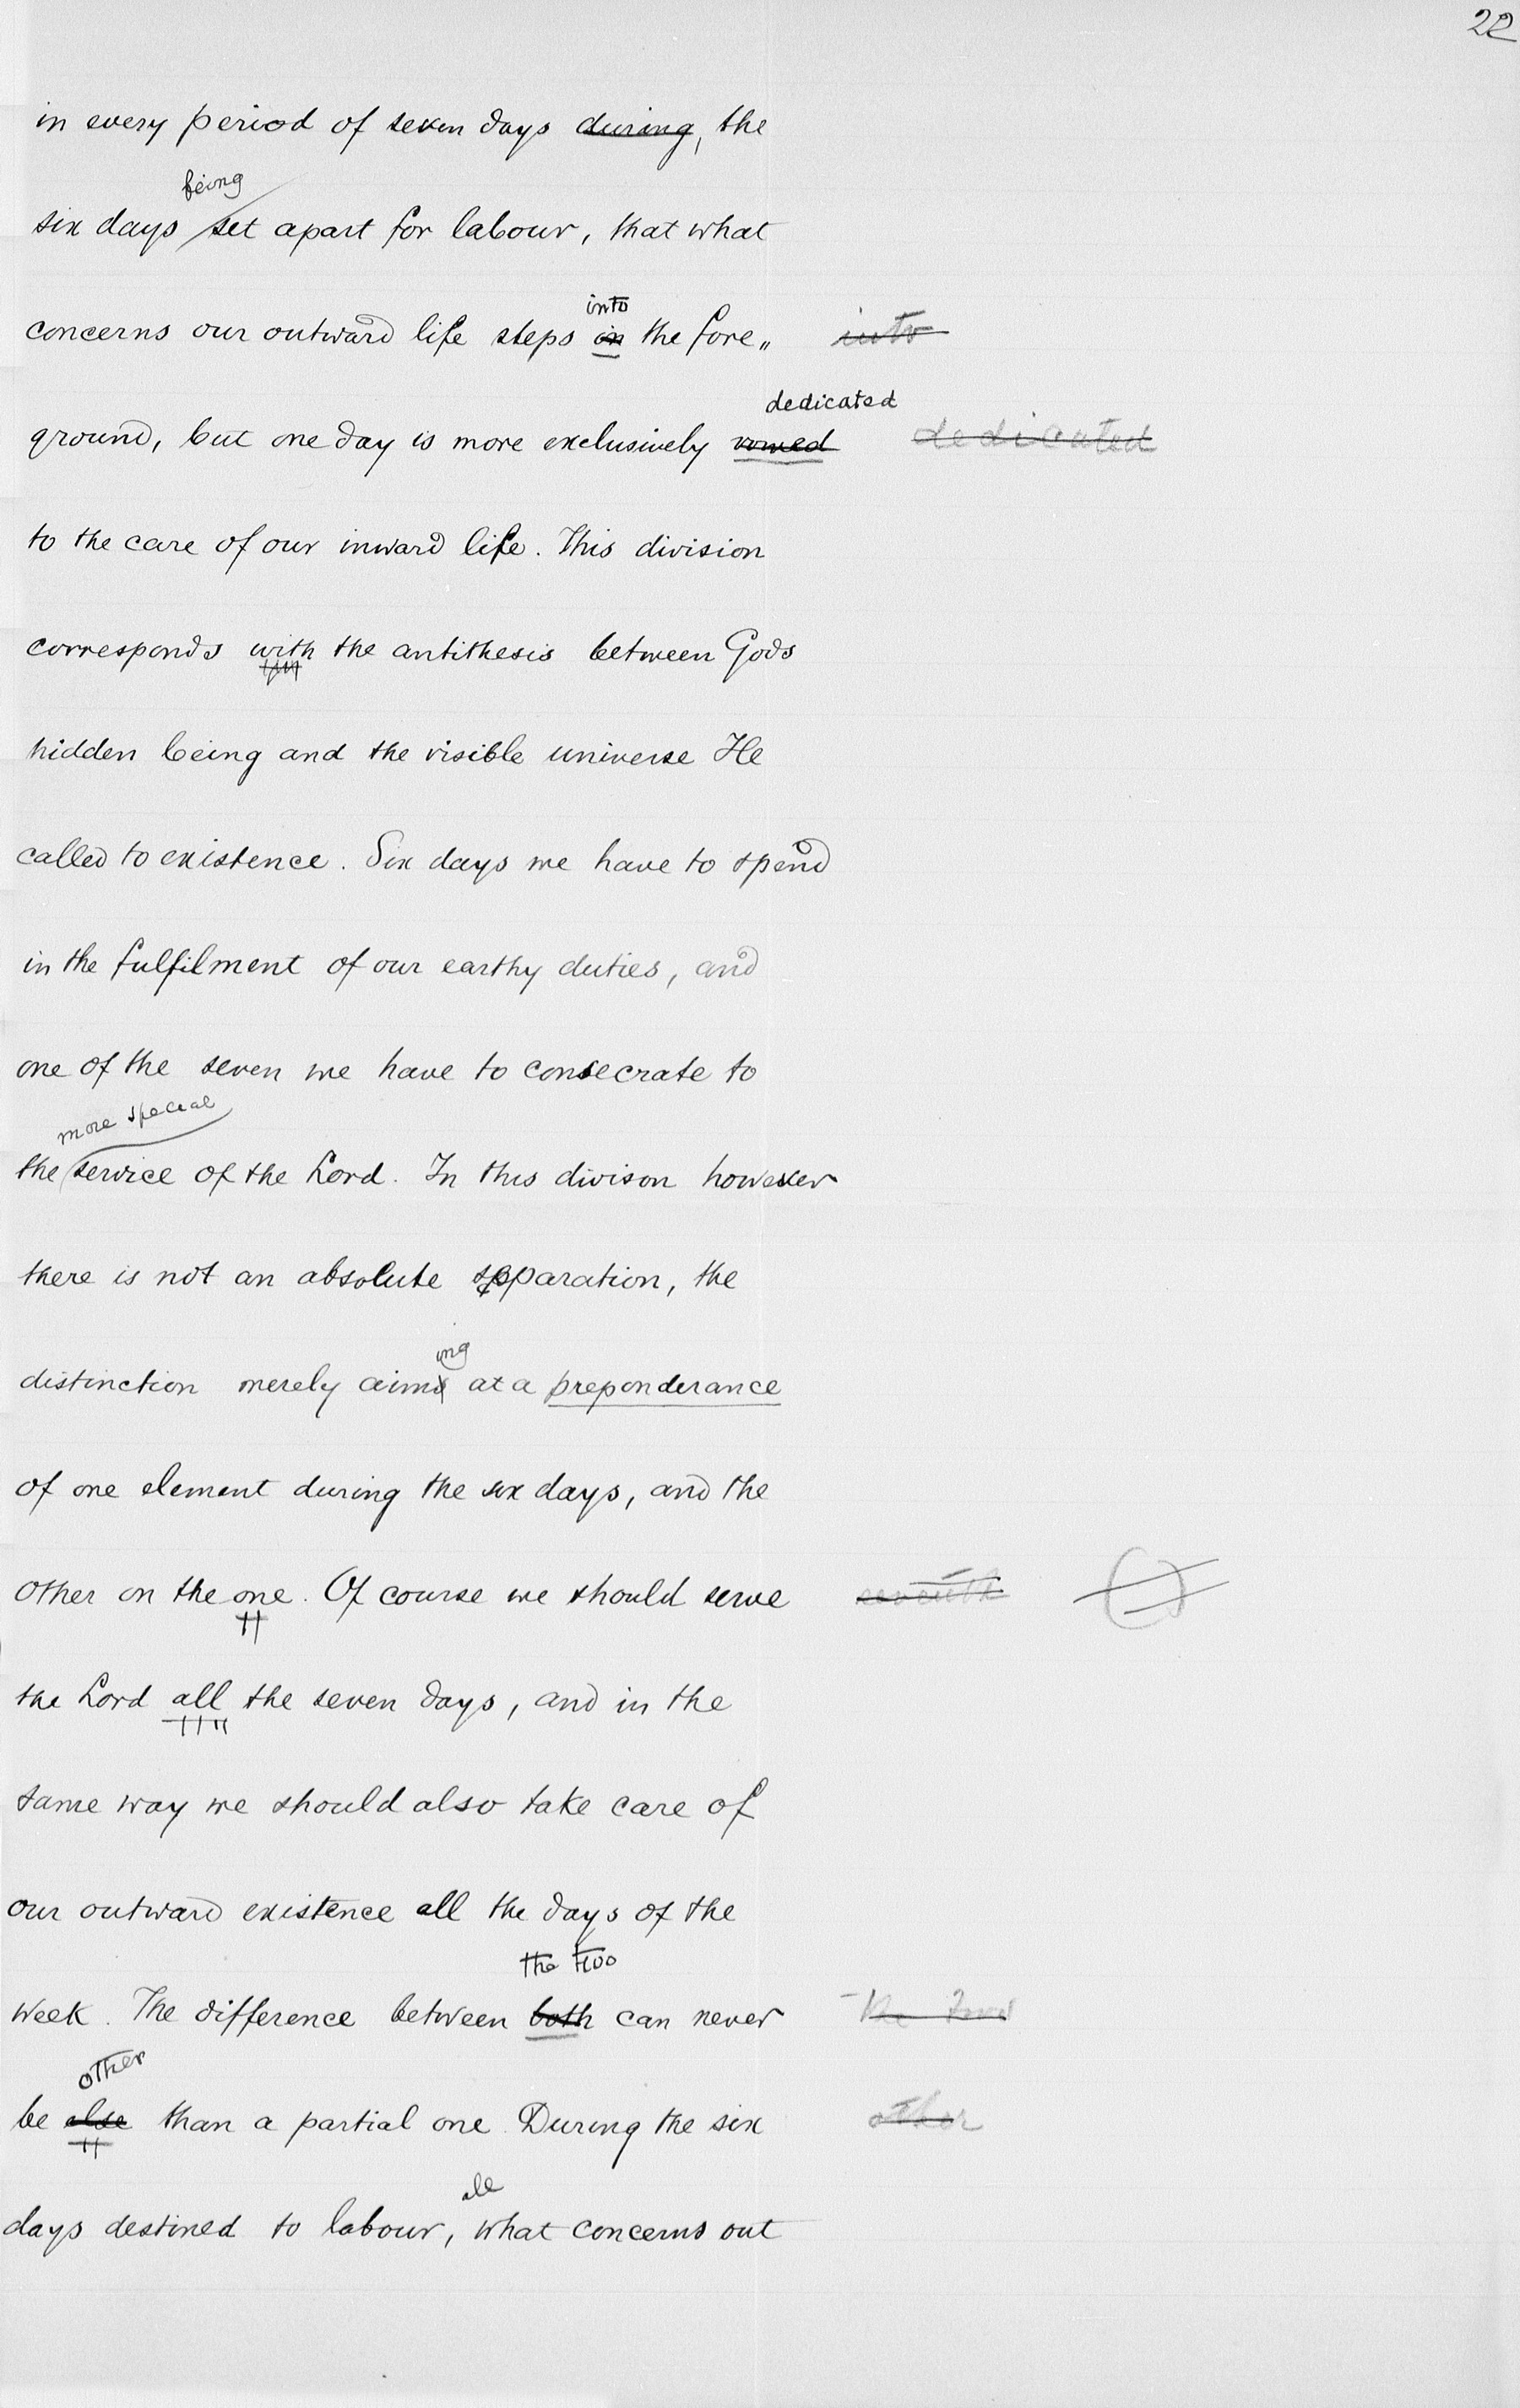 22
in every period of seven days during, the
being
six days set apart for labour, that what
into
concerns our outward life steps in the fore„ into
dedicated
ground, but one day is more exclusively vowed dedicated
to the care of our inward life. This division
corresponds with the antithesis between Gods
hidden being and the visible universe He
called to existence. Six days we have to spend
in the fulfilment of our earthy duties, and
one of the seven we have to consecrate to
more special
the service of the Lord. In this divison however
there is not an absolute separation, the
ing
distinction merely aims at a preponderance
of one element during the six days, and the
other on the one. Of course we should serve seventh
the Lord all the seven days, and in the
same way we should also take care of
our outward existence all the days of the
the two
week. The difference between both can never the two
other
be else than a partial one. During the six other
all
days destined to labour, what concerns out